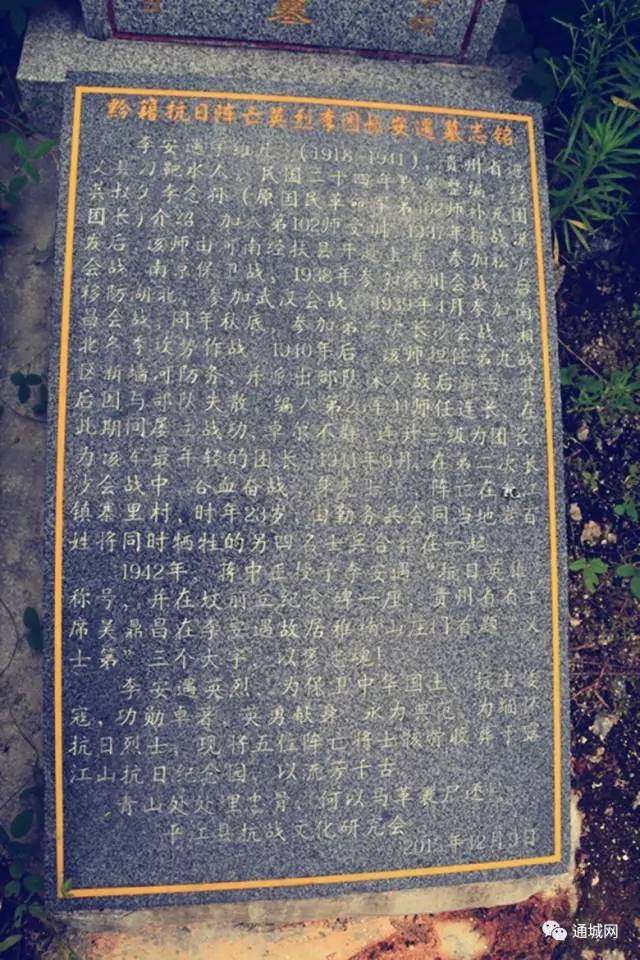 墓
黔籍抗日阵亡英烈李团长安遇墓志铭
李安遇字维尼（1918-1941），贵州省遵
义县刀靶水人，民国二十四年
其叔父李念孙（原国民革命军第102师补充团
团长）介绍，加入第102师受训，1937年抗战爆
发后，该师由河南经扶县开赴上海，参加淞沪
会战、南京保卫战，1938年参加徐州会战，后
移防湖北，参加武汉会战，1939年4月参加南
昌会战，同年秋底，参加第一次长沙会战、湘
北冬季攻势作战，1940年后，该师担任第九战
区新墙河防务，并派出部队深入敌后游击，其
后因与部队失散，编入第 师任连长，在
此期间屡立战功，卓尔不群，连升三级为团长，
为该军最年轻的团长，1941年9月，在第二次长
沙会战中，浴血奋战，身先士卒，阵亡在
镇恭里村，时年23岁，由勤务兵会同当地老百
姓将同时牺牲的另四名士兵合葬在一起。
1942年，蒋中正授予李安遇“抗日英雄”
称号，并在坟前立纪念碑一座，贵州省省主
席吴鼎昌在李安遇故居雅琦山庄门首题“义
士第”三个大字，以褒忠魂！
李安遇英烈，为保卫中华国土，抗击倭
寇，功勋卓著，英勇献身，永为典范，为缅怀
抗日烈士，现将五位阵亡将士骸骨收葬于幕
江山抗日纪念园，以流芳千古。
青山处处埋忠骨，何以马革裹尸还！
平江县抗战文化研究会
12月9日
通城网